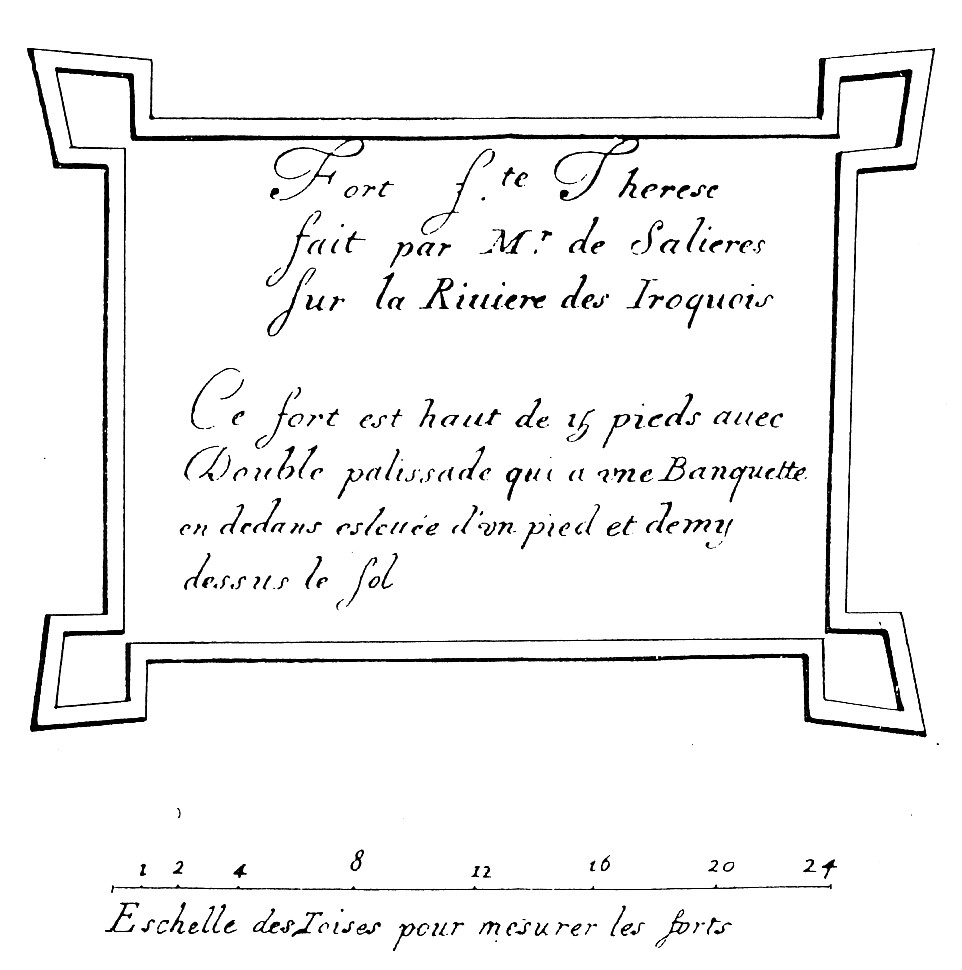 Fort S.te Therese
fait par Mr. de Salieres
sur la Riuiere des Iroquois
Ce fort est haut de 15 pieds auec
Double palissade qui a vne Banquette
en dedans esleuée d'vn pied et demy
dessus le sol
1 2 4 8 12 16 20 24
Eschelle des Toises pour mesurer les forts